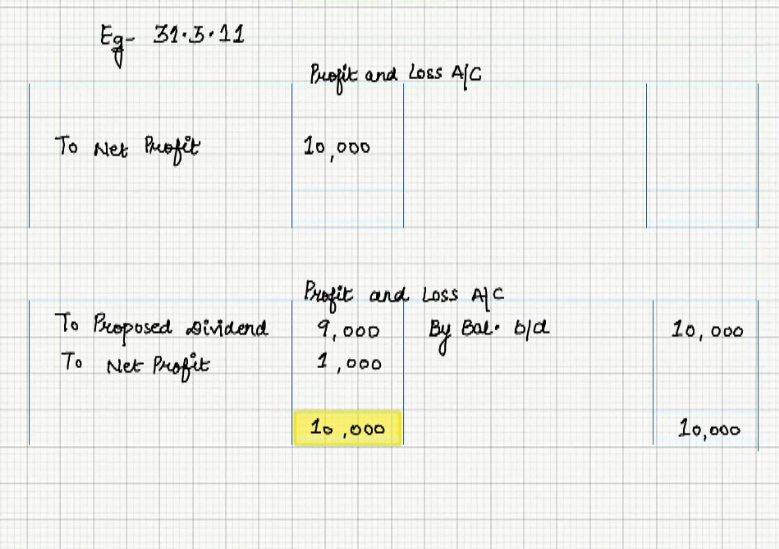 Eg- 31.3.11
Profit and Loss A/C
To Net Profit 10,000
Profit and Loss A/C
To Proposed Dividend 9,000 By Bal. b/d 10,000
To Net Profit 1,000
10,000 10,000